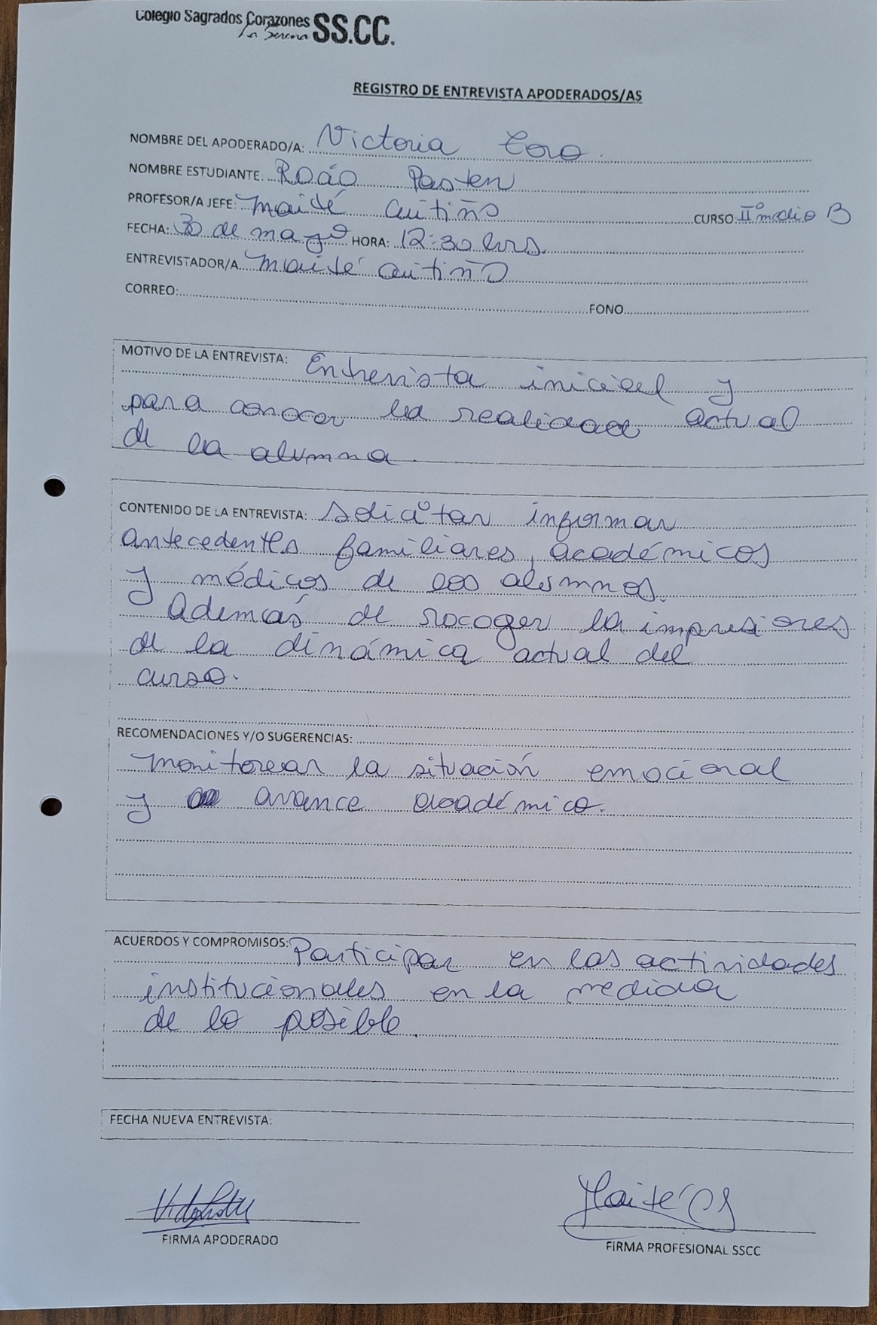 Colegio Sagrados Corazones SS.CC.
La Serena
REGISTRO DE ENTREVISTA APODERADOS/AS
NOMBRE DEL APODERADO/A: Victoria Toro
NOMBRE ESTUDIANTE: Pasten
PROFESOR/A JEFE: Maité Cutiño CURSO IIº medio B
FECHA: 30 de mayo HORA: 12:30 hrs.
ENTREVISTADOR/A Maité Cutiño
CORREO: FONO
MOTIVO DE LA ENTREVISTA: Entrevista inicial y
para conocer la realidad actual
de la alumna
CONTENIDO DE LA ENTREVISTA: Solicitar informar
antecedentes familiares, académicos
y médicos de los alumnos.
Además de recoger la impresiones
de la dinámica actual del
curso.
RECOMENDACIONES Y/O SUGERENCIAS:
Monitorear la situación emocional
y avance académico.
ACUERDOS Y COMPROMISOS: Participar en las actividades
institucionales en la medida
de lo posible.
FECHA NUEVA ENTREVISTA:
Maité CS
FIRMA APODERADO
FIRMA PROFESIONAL SSCC